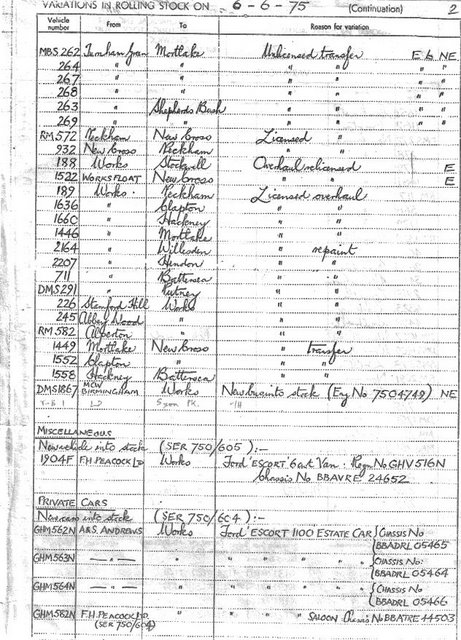 VARIATIONS IN ROLLING STOCK ON 6-6-75 (Continuation) 2
Vehicle number From To Reason for variation
MBS 262 Turnham Green Mortlake Unlicensed transfer E 6 NE
264 " " " " " " "
267 " " " " " " "
268 " " " " " " "
263 " Shepherds Bush " " " " "
269 " " " " " " "
RM 572 Peckham New Cross Licensed "
932 New Cross Peckham " "
188 Works Stockwell Overhaul relicensed E
1522 WORKS FLOAT New Cross " " E
189 Works Peckham Licensed overhaul
1636 " Clapton " "
1660 " Hackney " "
1446 " Mortlake " "
2164 " Willesden " repaint
2207 " Hendon " "
711 " Battersea " "
DMS 291 " Putney " "
226 Stamford Hill Works " "
245 Abbey Wood " " "
RM 582 Alperton " " "
1449 Mortlake New Cross " Transfer
1552 Clapton " " "
1558 Hackney Battersea " "
DMS1867 MCW BIRMINGHAM Works New bus into stock (Eng No 7504749) NE
MISCELLANEOUS
New vehicle into stock (SER 750/605) :-
1904F F.H. PEACOCK LTD Works Ford 'ESCORT' 6cwt Van : Regn No GHV 516N
Chassis No BBAVRE 24652
PRIVATE CARS
New cars into stock (SER 750/604) :-
GHM562N A&S. ANDREWS Works Ford 'ESCORT 1100 ESTATE CAR CHASSIS No
BBADRL 05465
GHM563N — " — " " " " " " CHASSIS No:
BBADRL 05464
GHM564N — " — " " " " " " CHASSIS No
BBADRL 05466
GHM582N F.H. PEACOCK LTD " " " SALOON Chassis No BBATRE 44503
(SER 750/604)